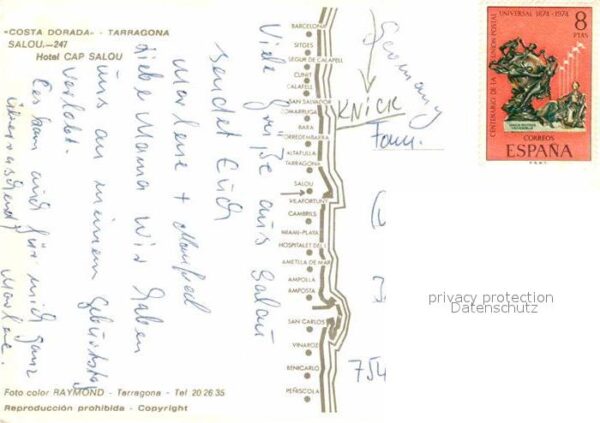 «COSTA DORADA» - TARRAGONA
SALOU.—247
Hotel CAP SALOU
Viele Grüße aus Salou
sendet Euch
Marlene + Manfred
Liebe Mama wir haben
uns an meinem Geburtstag
verlobt.
Es kam auch für mich ganz
überraschend.
Marlene.
Foto color RAYMOND - Tarragona - Tel 20 26 35
Reproducción prohibida - Copyright
BARCELONA
SITGES
SEGUR DE CALAFELL
CUNIT
CALAFELL
SAN SALVADOR
COMARRUGA
BARA
TORREDEMBARRA
ALTAFULLA
TARRAGONA
SALOU
VILAFORTUNY
CAMBRILS
MIAMI-PLAYA
HOSPITALET DEL I.
AMETLLA DE MAR
AMPOLLA
AMPOSTA
SAN CARLOS
VINAROZ
BENICARLO
PEÑISCOLA
Germany
KNICK
Fam.
754
CENTENARIO DE LA UNION POSTAL UNIVERSAL 1874-1974
8
PTAS
CORREOS
ESPAÑA
privacy protection
Datenschutz